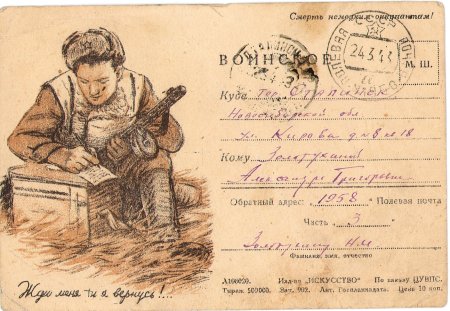 Смерть немецким оккупантам!
ВОИНСКОЕ
ПОЛЕВАЯ ПОЧТА
СССР
24.3.43
М. Ш.
Куда гор. Сталинск
Новосибирской обл
ул Кирова д № 8 кв 18
Кому Золотухиной
Александре Григорьевне
Обратный адрес: 1958 Полевая почта
Часть 3
Золотухину Н М
Фамилия, имя, отчество
Жди меня и я вернусь!...
А100020. Изд-во „ИСКУССТВО“ По заказу ЦУВПС.
Тираж 500000. Зак. 902. Акт. Госпланиздата. Цена 10 коп.